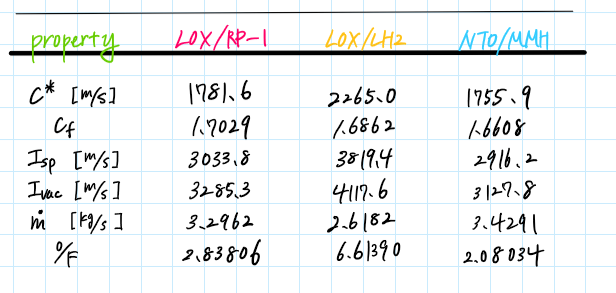 property LOX/RP-1 LOX/LH2 NTO/MMH
C* [m/s] 1781.6 2265.0 1755.9
Cf 1.7029 1.6862 1.6608
Isp [m/s] 3033.8 3819.4 2916.2
Ivac [m/s] 3285.3 4117.6 3127.8
ṁ [kg/s] 3.2962 2.6182 3.4291
O/F 2.83806 6.61390 2.08034